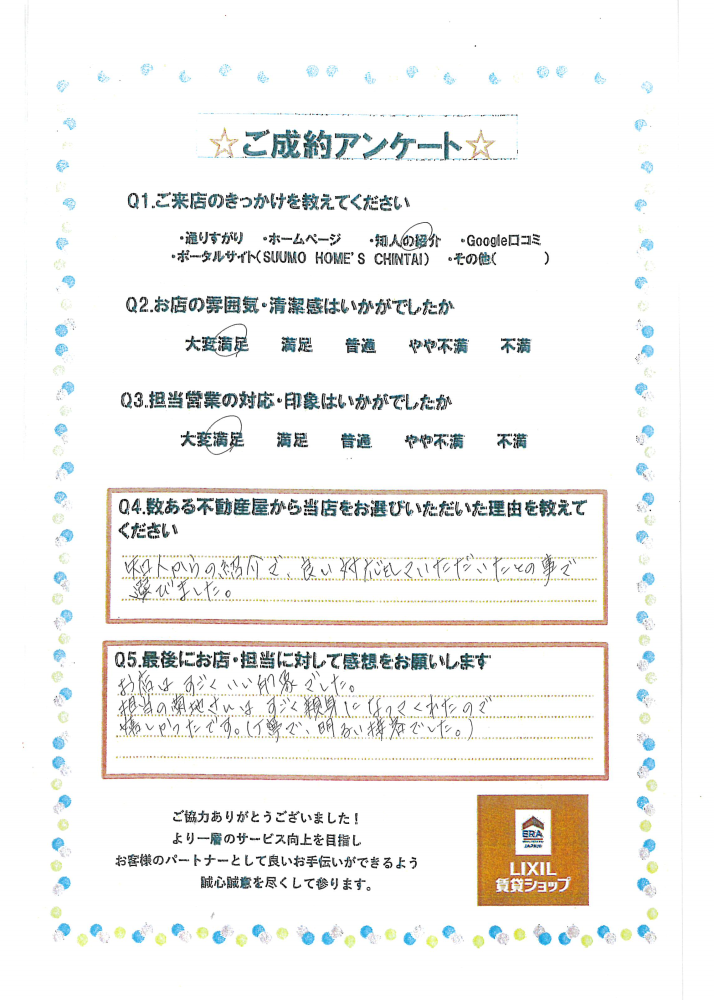 ☆ご成約アンケート☆
Q1.ご来店のきっかけを教えてください
・通りすがり ・ホームページ ・知人の紹介 ・Google口コミ
・ポータルサイト(SUUMO HOME'S CHINTAI) ・その他( )
Q2.お店の雰囲気・清潔感はいかがでしたか
大変満足 満足 普通 やや不満 不満
Q3.担当営業の対応・印象はいかがでしたか
大変満足 満足 普通 やや不満 不満
Q4.数ある不動産屋から当店をお選びいただいた理由を教えて
ください
知人からの紹介で、良い対応をしていただいたとの事で
選びました。
Q5.最後にお店・担当に対して感想をお願いします
お店はすごくいい印象でした。
担当の さんはすごく親身になってくれたので
嬉しかったです。(丁寧で、明るい接客でした。)
ご協力ありがとうございました!
より一層のサービス向上を目指し
お客様のパートナーとして良いお手伝いができるよう
誠心誠意を尽くして参ります。
ERA
JAPAN
LIXIL
賃貸ショップ